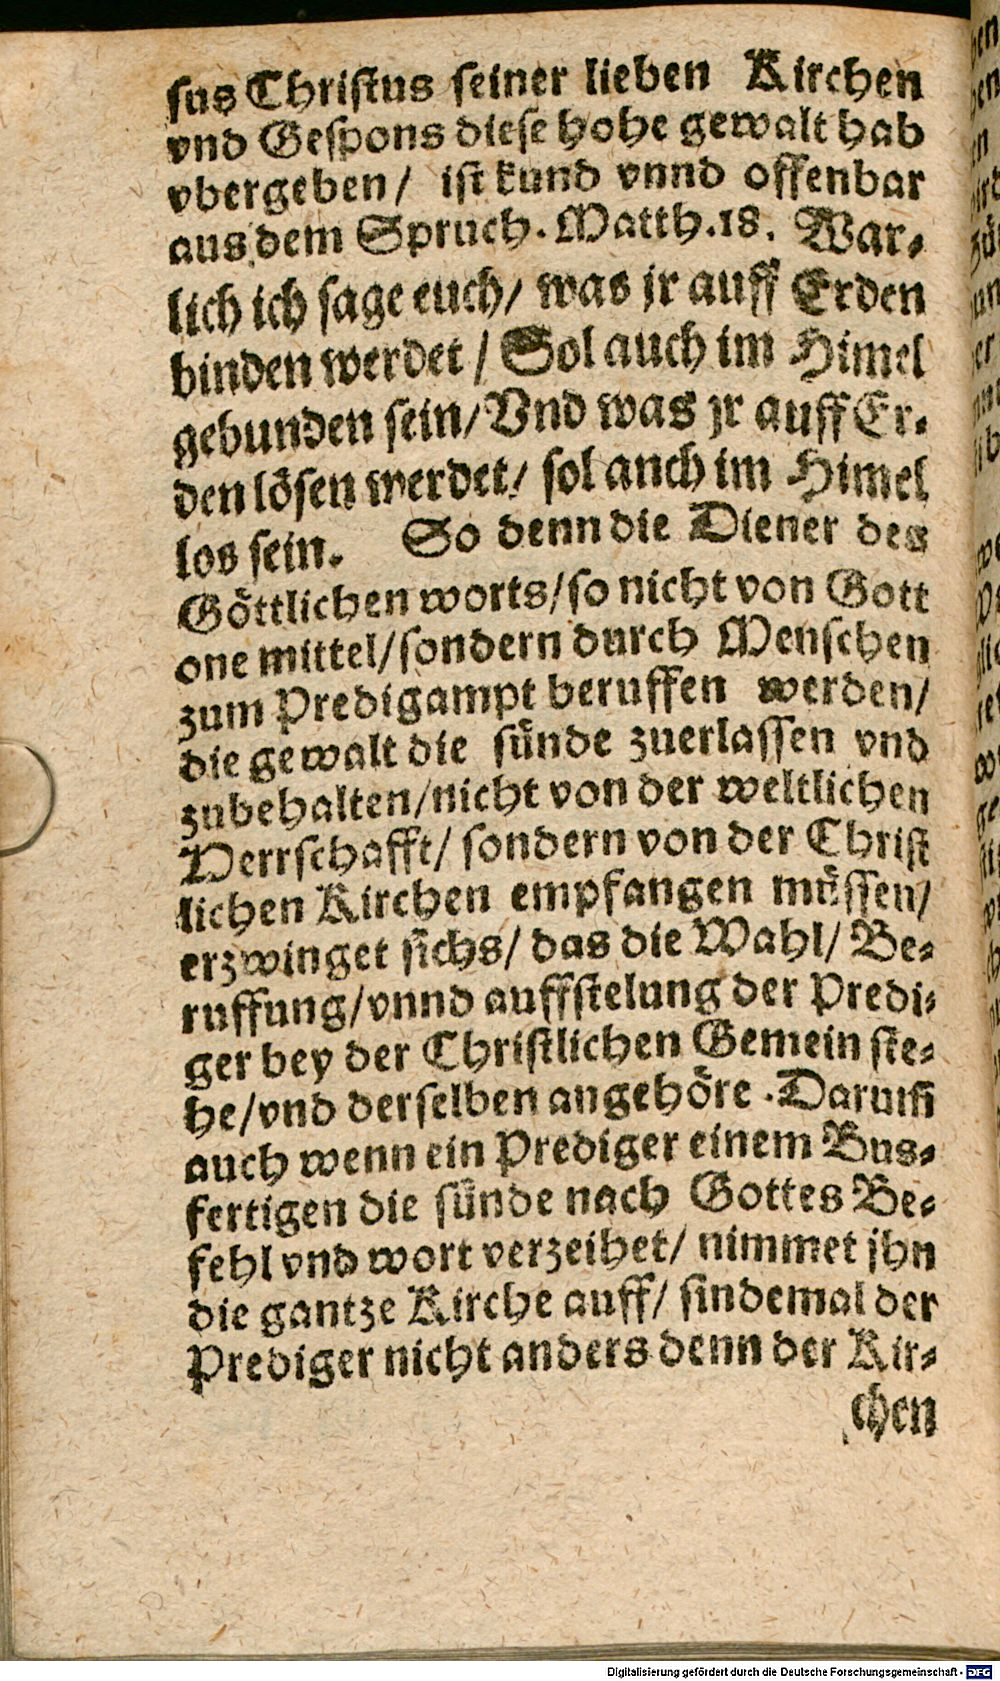 sus Christus seiner lieben Kirchen
vnd Gespons diese hohe gewalt hab
vbergeben/ ist kund vnnd offenbar
aus dem Spruch. Matth.18. War-
lich ich sage euch/ was jr auff Erden
binden werdet / Sol auch im Himel
gebunden sein/ Vnd was jr auff Er-
den lösen werdet/ sol anch im Himel
los sein. So denn die Diener des
Göttlichen worts/ so nicht von Gott
one mittel/ sondern durch Menschen
zum Predigampt beruffen werden/
die gewalt die sünde zuerlassen vnd
zubehalten/ nicht von der weltlichen
Herrschafft/ sondern von der Christ
lichen Kirchen empfangen müssen/
erzwinget sichs/ das die Wahl/ Be-
ruffung/ vnnd auffstelung der Predi-
ger bey der Christlichen Gemein ste-
he/ vnd derselben angehöre . Darum̄
auch wenn ein Prediger einem Bus-
fertigen die sünde nach Gottes Be-
fehl vnd wort verzeihet/ nimmet jhn
die gantze Kirche auff/ sindemal der
Prediger nicht anders denn der Kir-
chen
Digitalisierung gefördert durch die Deutsche Forschungsgemeinschaft - DFG